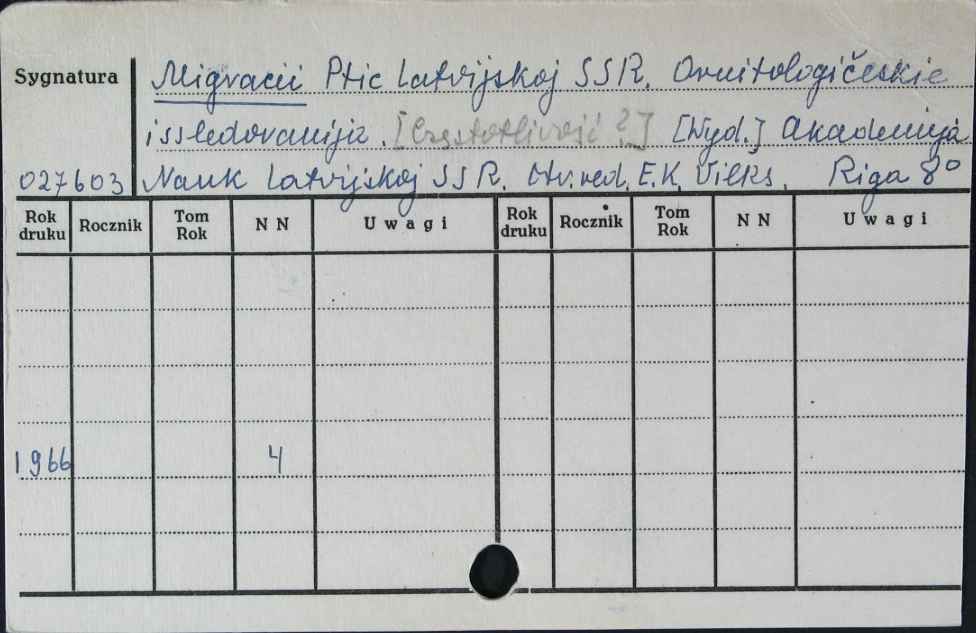 Sygnatura Migracii Ptic Latvijskoj SSR. Ornitologičeskie
issledovanija. [Częstotliwość ?] [Wyd.] Akademija
027603 Nauk Latvijskoj SSR. Otv. red. E.K. Vilks. Riga 8°
Rok druku Rocznik Tom Rok NN Uwagi Rok druku Rocznik Tom Rok NN Uwagi
1966 4